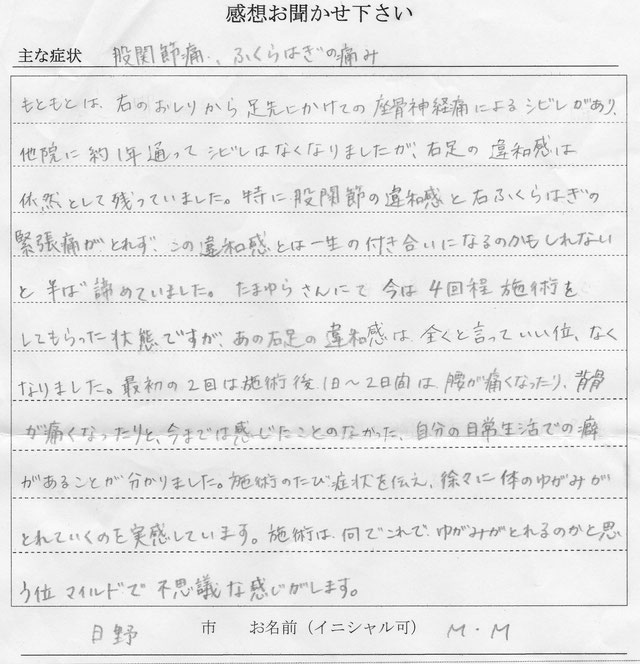 感想お聞かせ下さい
主な症状 股関節痛、ふくらはぎの痛み
もともとは、右のおしりから足先にかけての座骨神経痛によるシビレがあり、
他院に約1年通ってシビレはなくなりましたが、右足の違和感は
依然として残っていました。特に股関節の違和感と右ふくらはぎの
緊張痛がとれず、この違和感とは一生の付き合いになるのかもしれない
と半ば諦めていました。たまゆらさんにて今は4回程施術を
してもらった状態ですが、あの右足の違和感は、全くと言っていい位、なく
なりました。最初の2回は施術後、1日〜2日間は、腰が痛くなったり、背骨
が痛くなったりと、今までは感じたことのなかった、自分の日常生活での癖
があることが分かりました。施術のたび症状を伝え、徐々に体のゆがみが
とれていくのを実感しています。施術は、何でこれで、ゆがみがとれるのかと思
う位マイルドで不思議な感じがします。
日野 市 お名前（イニシャル可） M・M